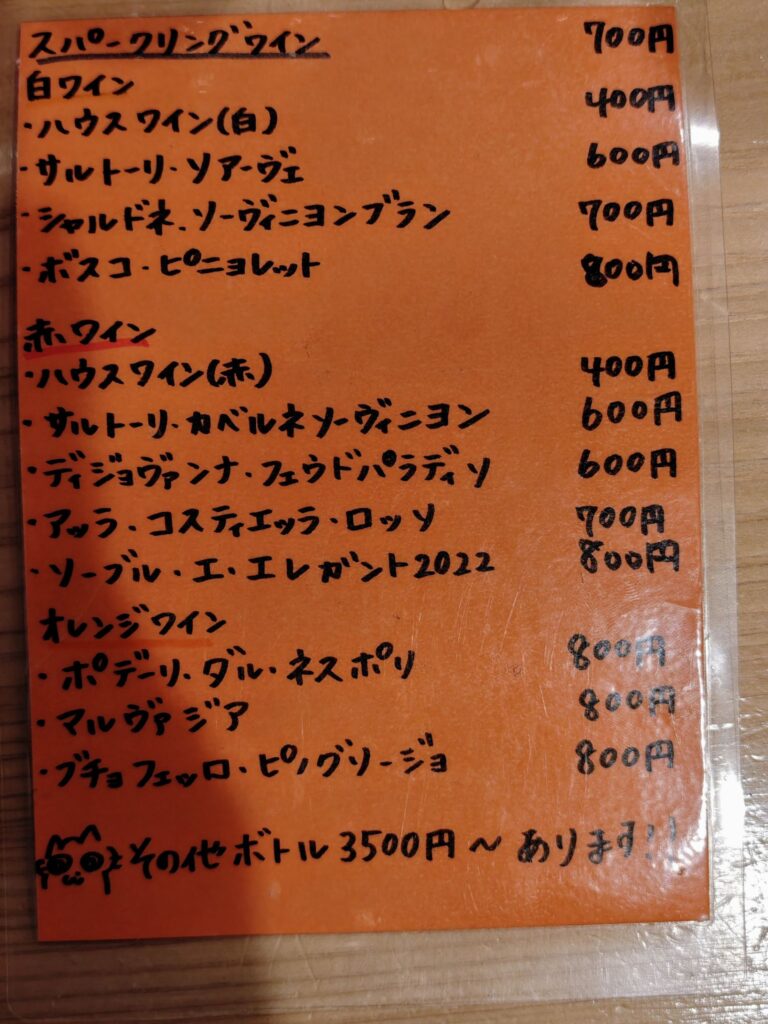 スパークリングワイン 700円
白ワイン
・ハウスワイン(白) 400円
・サルトーリ・ソアーヴェ 600円
・シャルドネ.ソーヴィニヨンブラン 700円
・ボスコ・ピニョレット 800円
赤ワイン
・ハウスワイン(赤) 400円
・サルトーリ・カベルネソーヴィニヨン 600円
・ディジョヴァンナ・フェウドパラディソ 600円
・アッラ・コスティエッラ・ロッソ 700円
・ソーブル・エ・エレガント2022 800円
オレンジワイン
・ポデーリ・ダル・ネスポリ 800円
・マルヴァジア 800円
・ブチョフェッロ・ピノグリージョ 800円
その他ボトル3500円〜あります!!